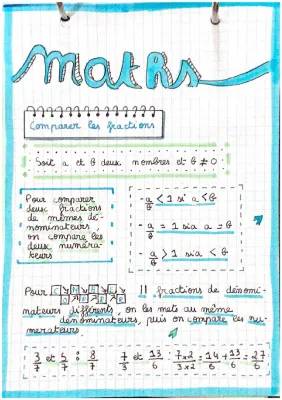 maths
Comparer les fractions
Soit a et b deux nombres et b ≠ 0
Pour comparer
deux fractions
de mêmes dé-
nominateurs,
on compare les
deux numéra-
teurs
- a/b < 1 si a < b
- a/b = 1 si a = b
- a/b > 1 si a < b
Pour
fractions de dénomi-
nateurs différents, on les mets au même
dénominateurs, puis on compare les nu-
merateurs
3/7 et 5/7 : 8/7
7/3 et 13/6 : 7×2/3×2 = 14/6 + 13/6 = 27/6